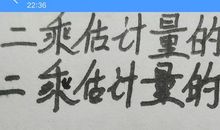 22:36
二乘估计量的
二乘估计量的